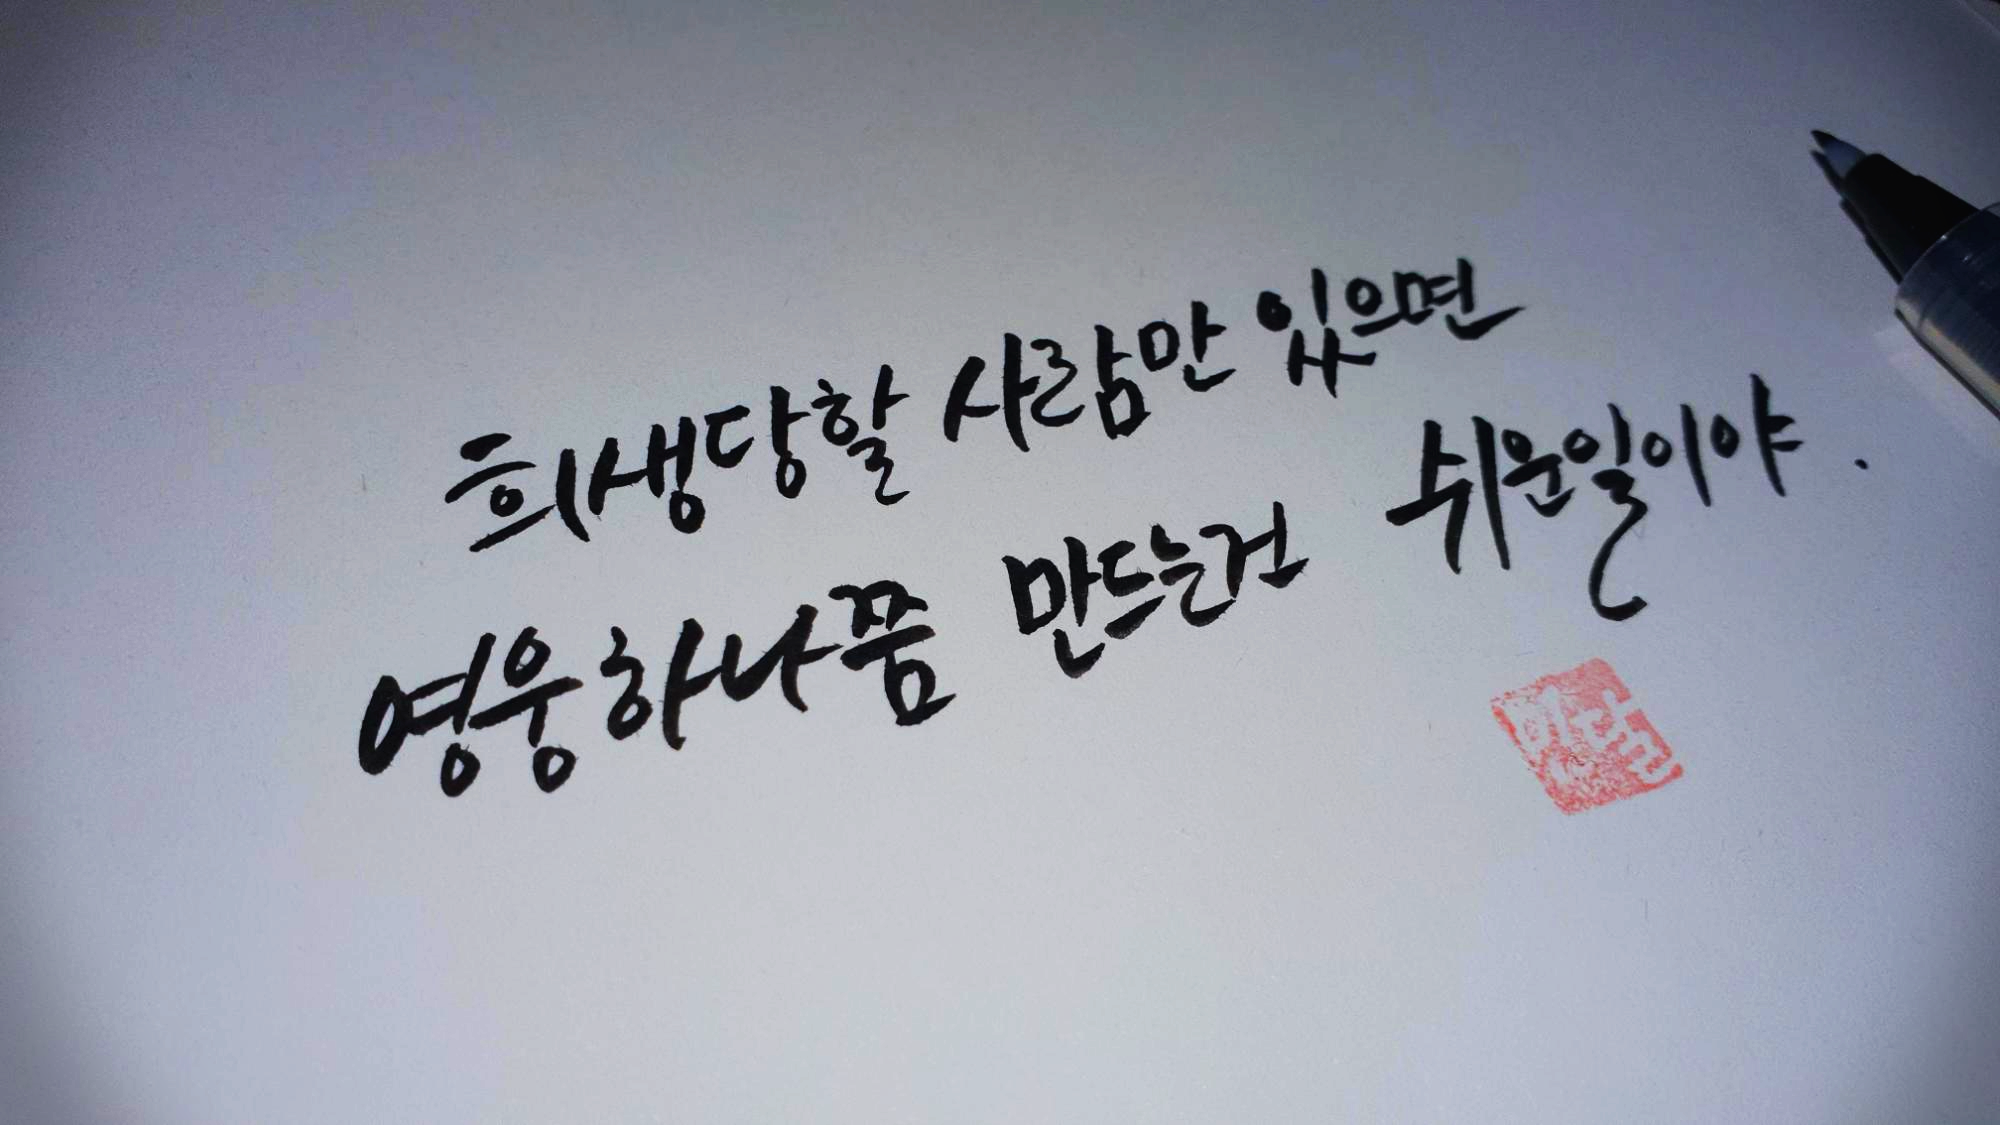 희생당할 사람만 있으면
영웅하나쯤 만드는건 쉬운일이야.